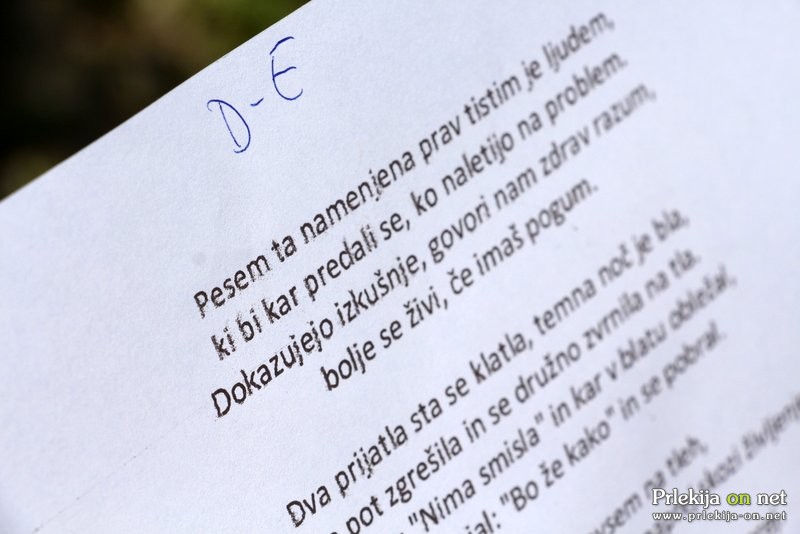 D-E
Pesem ta namenjena prav tistim je ljudem,
ki bi kar predali se, ko naletijo na problem.
Dokazujejo izkušnje, govori nam zdrav razum,
bolje se živi, če imaš pogum.
Dva prijatla sta se klatla, temna noč je bla,
pot zgrešila in se družno zvrnila na tla.
"Nima smisla" in kar v blatu obležal,
"Bo že kako" in se pobral.
na tleh,
skozi življenje
Prlekija on net
www.prlekija-on.net